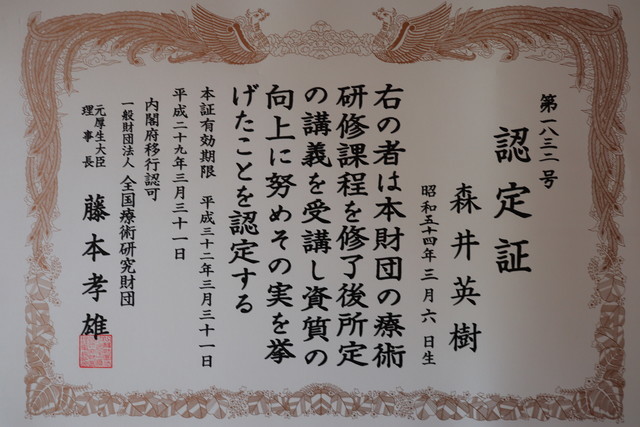 第一八三二号
認定証
森井英樹
昭和五十四年三月六日生
右の者は本財団の療術
研修課程を修了後所定
の講義を受講し資質の
向上に努めその実を挙
げたことを認定する
本証有効期限　平成三十二年三月三十一日
平成二十九年三月三十一日
内閣府移行認可
一般財団法人 全国療術研究財団
元厚生大臣
理事長 藤本孝雄